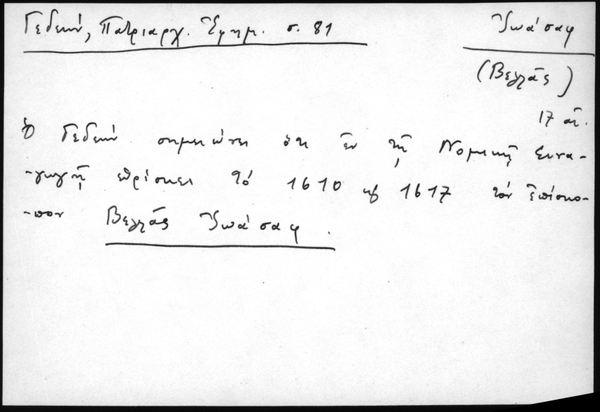 Γεδεών, Πατριαρχ. Ἐφημ. σ. 81
Ἰωάσαφ
(Βελλᾶς)
17 αἰ.
Ὁ Γεδεών σημειώνει ὅτι ἐν τῇ Νομικῇ Συνα-
-γωγῇ εὑρίσκει τό 1610 καὶ 1617 τόν ἐπίσκο-
-πον Βελλᾶς Ἰωάσαφ.